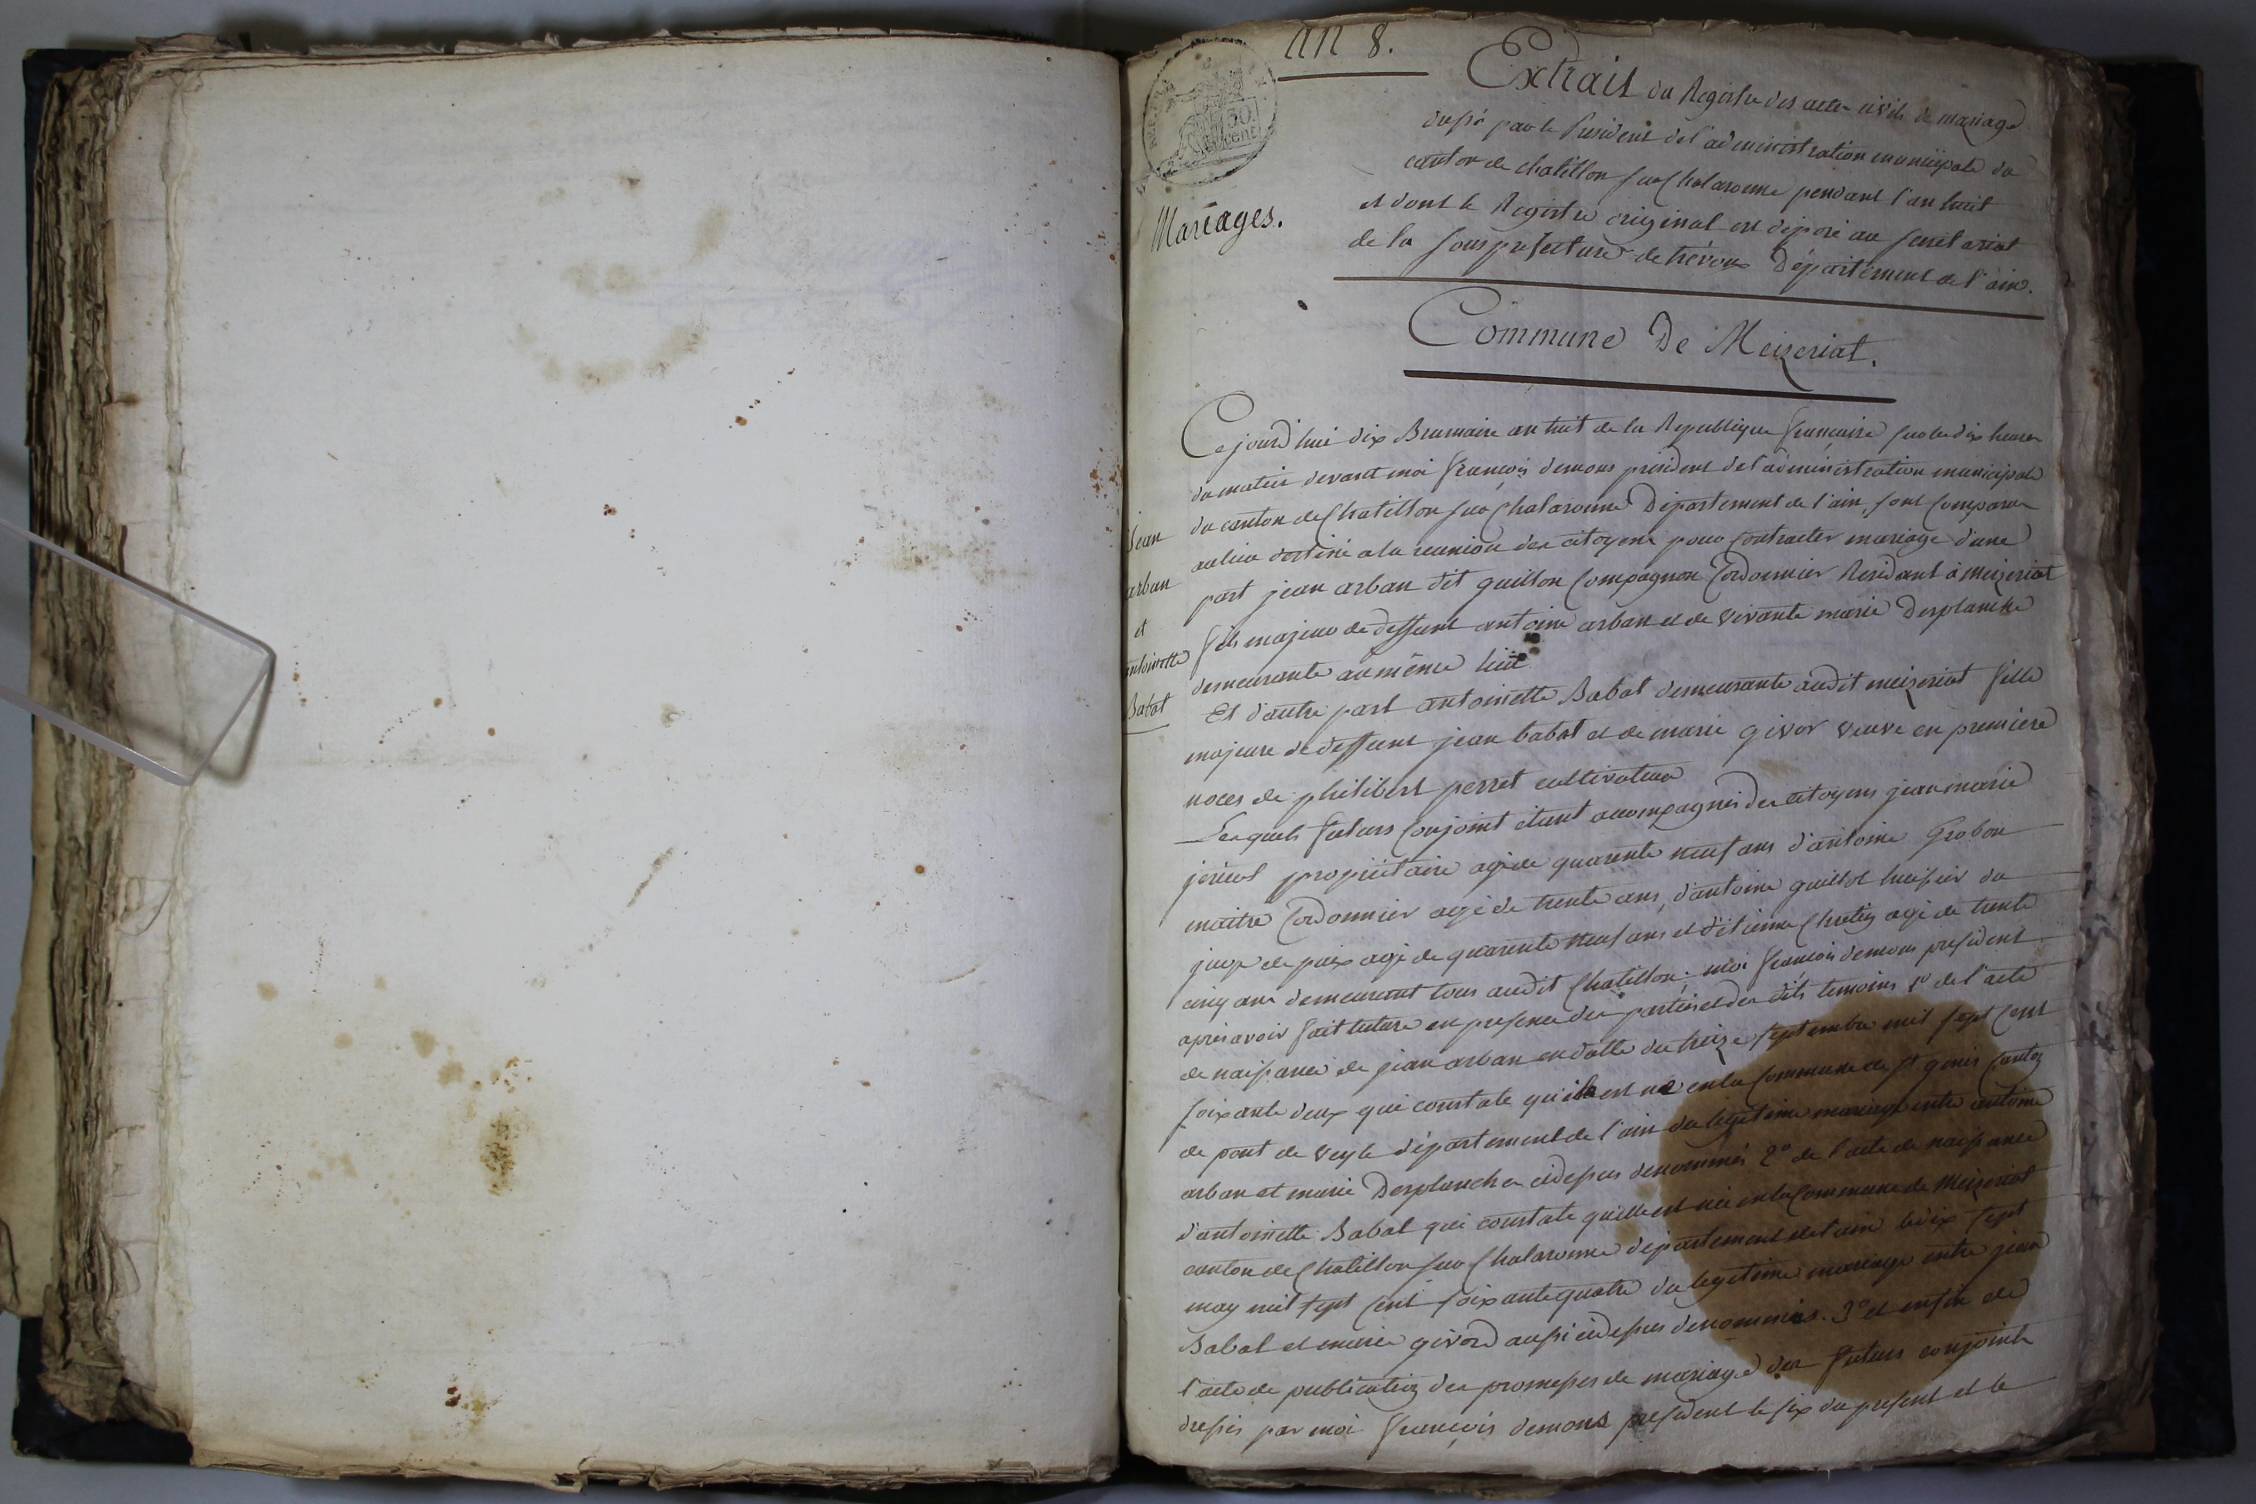 an 8.
30.
cent
Extrait du Registre des actes civils de mariage
dressé par le President de l'administration municipale du
canton de chatillon sur Chalaronne pendant l'an huit
et dont le Registre original est déposé au secretariat
de la sous prefecture de trévoux Département de l'ain.
Mariages.
Commune De Meizeriat.
Cejourd'hui dix Brumaire an huit de la Republique francaise sur les dix heures
du matin devant moi francois demons président de l'administration municipale
du canton de Chatillon sur Chalaronne Département de l'ain, sont comparus
au lieu destiné a la reunion des citoyens pour contracter mariage d'une
part jean arban dit guillon Compagnon Cordonnier Residant à Meizeriat
fils majeur de deffunt antoine arban et de vivante marie Desplanche
demeurante au même lieu
Jean
arban
et
antoinette
Babat
Et d'autre part antoinette Babat demeurante audit meizeriat fille
majeure de deffunt jean babat et de marie givor veuve en premiere
noces de philibert perret cultivateur
Lesquels futurs conjoint étant accompagnés des citoyens jean marie
propriétaire agé de quarente neuf ans d'antoine Grobon
maitre Cordonnier agé de trente ans, d'antoine guillot huissier du
juge de paix agé de quarente neuf ans et d'étienne Chretien agé de trente
cinq ans demeurant tous audit Chatillon; moi francois demons president
après avoir fait lecture en presence des parties et des dits temoins 1º de l'acte
de naissance de jean arban en datte du treize septembre mil sept cent
soixante deux qui constate qu'il est né en la Commune de St genis Canton
de pont de veyle département de l'ain du legitime mariage entre antoine
arban et marie Desplanche cidessus denommés 2º de l'acte de naissance
d'antoinette Babat qui constate qu'elle est née en la Commune de Meizeriat
canton de Chatillon sur Chalaronne département de l'ain le dix sept
may mil sept cent soixante quatre du legitime mariage entre jean
Babat et marie givord aussi cidessus denommés. 3º et enfin de
l'acte de publication des promesses de mariage des futurs conjoints
dressés par moi francois demons president le six du present et le